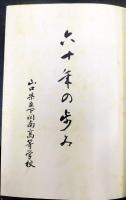 六十年の歩み
山口県立下関南高等学校